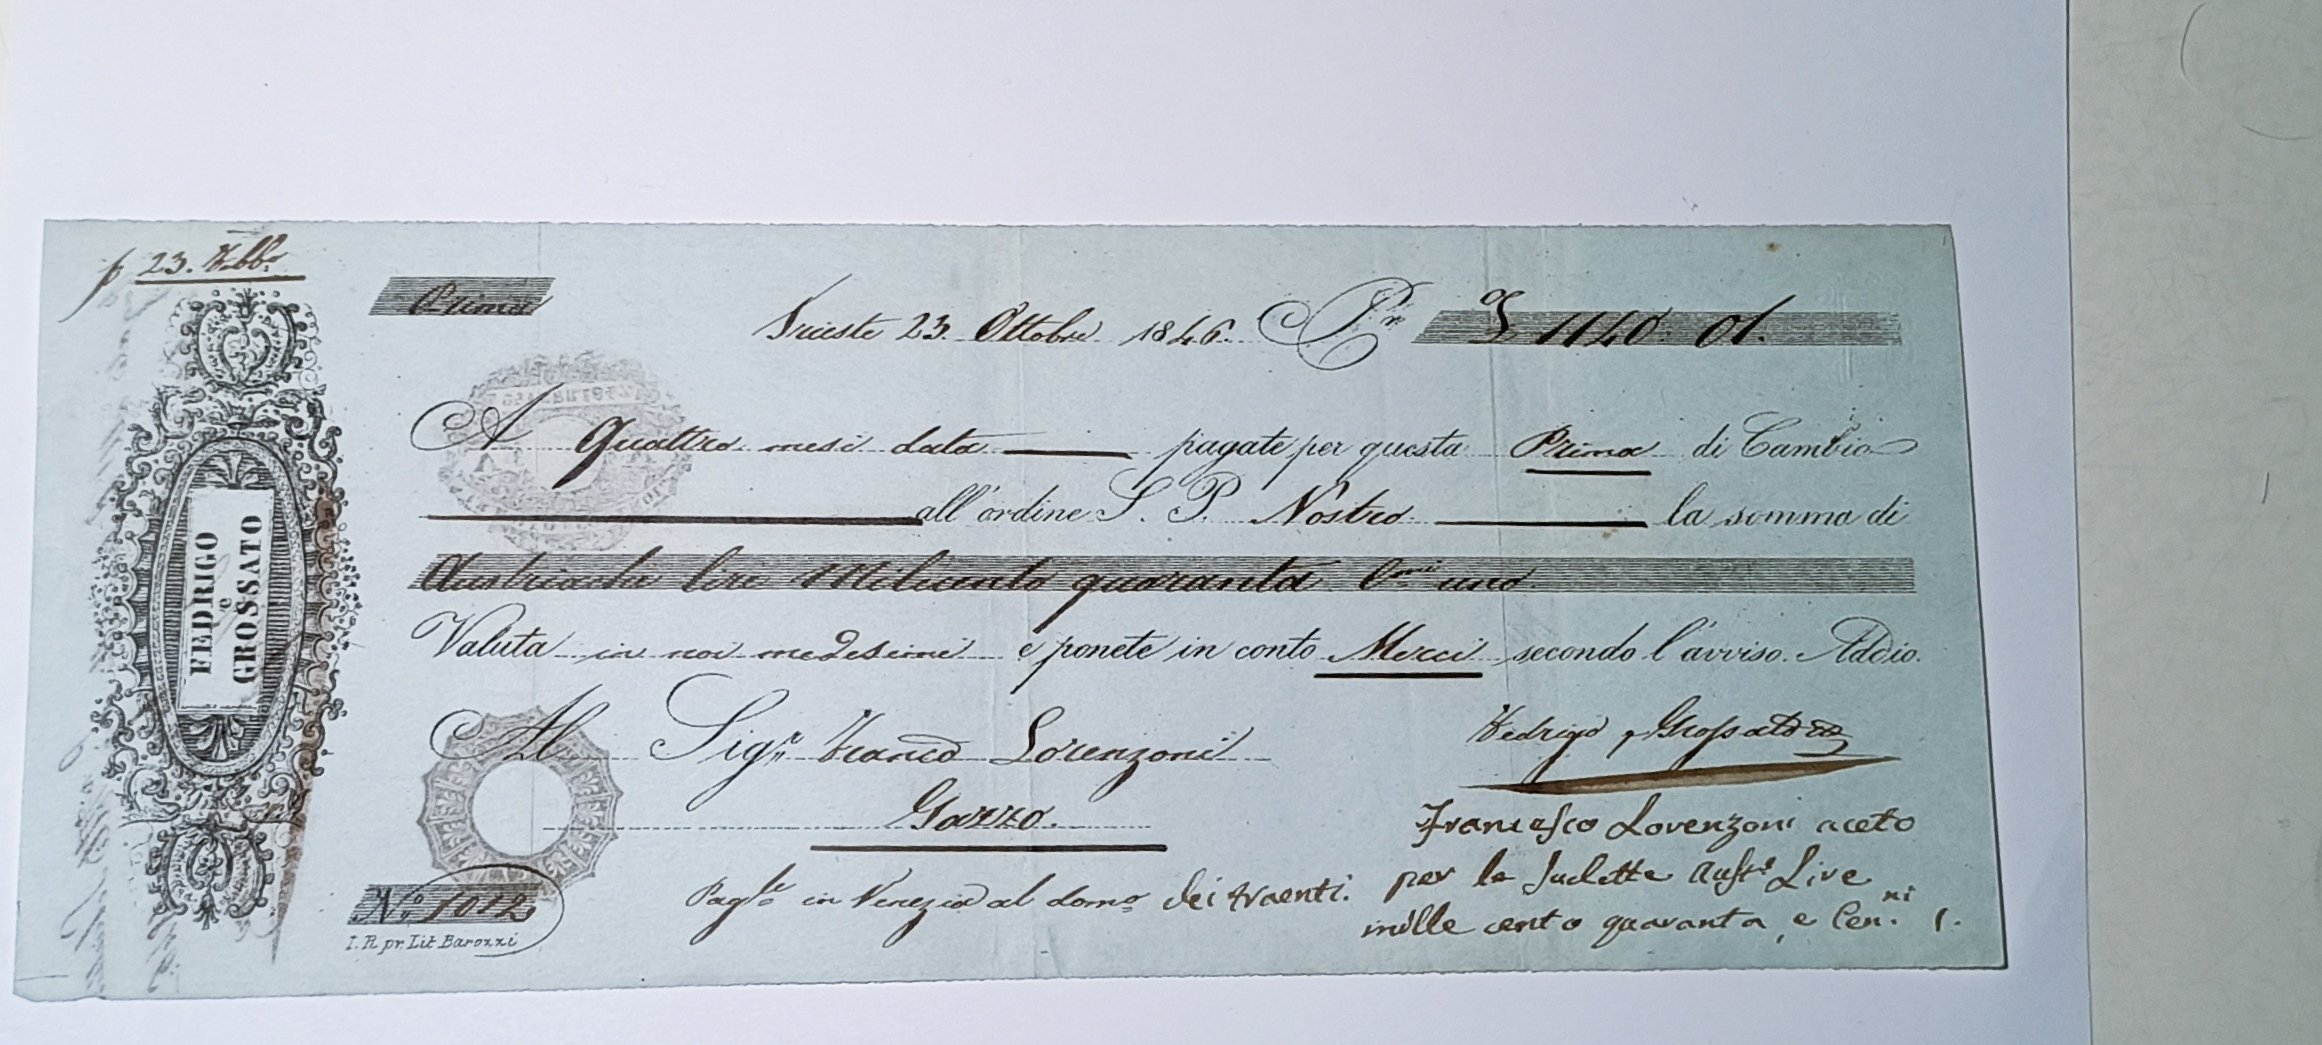 p 23. Febb.º
Prima
Trieste 23. Ottobre 1846. Pr £ 1140. 01.
A Quattro mesi data pagate per questa Prima di Cambio
all'ordine S. P. Nostro la somma di
Austriache lire Millecento quaranta C.mi uno.
Valuta in noi medesimi e ponete in conto Merci secondo l'avviso. Addio.
Al Sig.r Franco Lorenzoni
Gazzo.
Fedrigo e Grossato
Francesco Lorenzoni aceto
per le sudette aust.e Lire
mille cento quaranta, e Cen.ni 1.
Pag.le in Venezia al domo dei traenti.
N.º 1012
I. R. pr. Lit Barozzi
FEDRIGO
e
GROSSATO